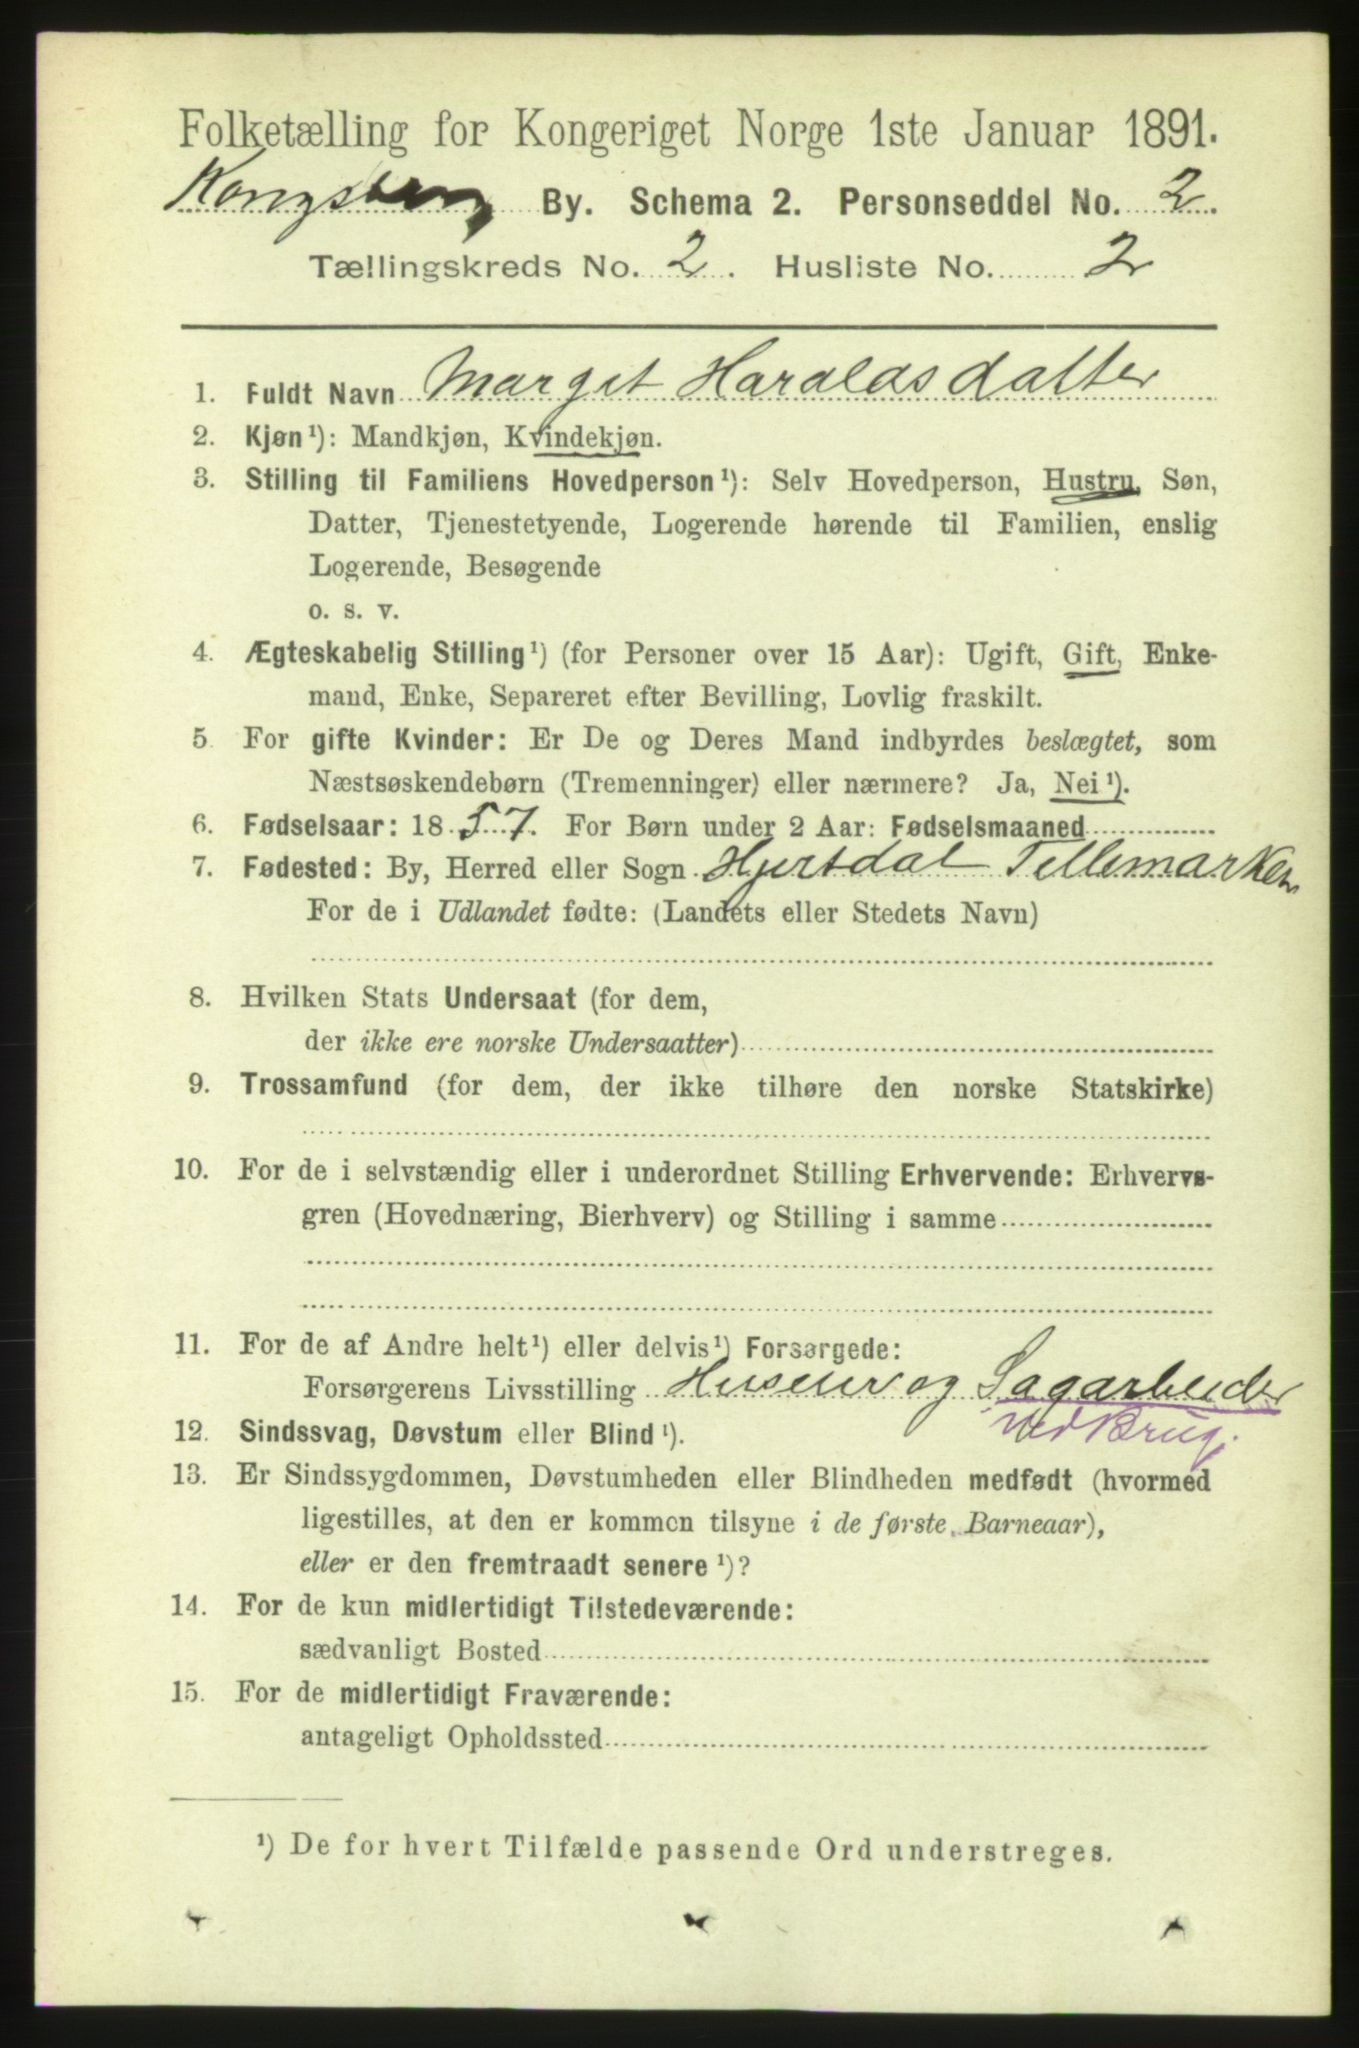 Folketælling for Kongeriget Norge 1ste Januar 1891.
Kongsberg By. Schema 2. Personseddel No. 2.
Tællingskreds No. 2. Husliste No. 2
1. Fuldt Navn Margit Haraldsdatter
2. Kjøn¹): Mandkjøn, Kvindekjøn.
3. Stilling til Familiens Hovedperson¹): Selv Hovedperson, Hustru, Søn,
Datter, Tjenestetyende, Logerende hørende til Familien, enslig
Logerende, Besøgende
o. s. v.
4. Ægteskabelig Stilling¹) (for Personer over 15 Aar): Ugift, Gift, Enke-
mand, Enke, Separeret efter Bevilling, Lovlig fraskilt.
5 For gifte Kvinder: Er De og Deres Mand indbyrdes beslægtet, som
Næstsøskendebørn (Tremenninger) eller nærmere? Ja, Nei¹).
6. Fødselsaar: 1857. For Børn under 2 Aar: Fødselsmaaned
7. Fødested: By, Herred eller Sogn Hjertdal Tellemarken
For de i Udlandet fødte: (Landets eller Stedets Navn)
8. Hvilken Stats Undersaat (for dem,
der ikke ere norske Undersaatter)
9. Trossamfund (for dem, der ikke tilhøre den norske Statskirke)
10. For de i selvstændig eller i underordnet Stilling Erhvervende: Erhvervs-
gren (Hovednæring, Bierhverv) og Stilling i samme
11. For de af Andre helt¹) eller delvis¹) Forsørgede:
Forsørgerens Livsstilling Huseier og Sagarbeider
ved Brug.
12. Sindssvag, Døvstum eller Blind¹).
13. Er Sindssygdommen, Døvstumheden eller Blindheden medfødt (hvormed
ligestilles, at den er kommen tilsyne i de første Barneaar),
eller er den fremtraadt senere¹)?
14. For de kun midlertidigt Tilstedeværende:
sædvanligt Bosted
15. For de midlertidigt Fraværende:
antageligt Opholdssted
¹) De for hvert Tilfælde passende Ord understreges.